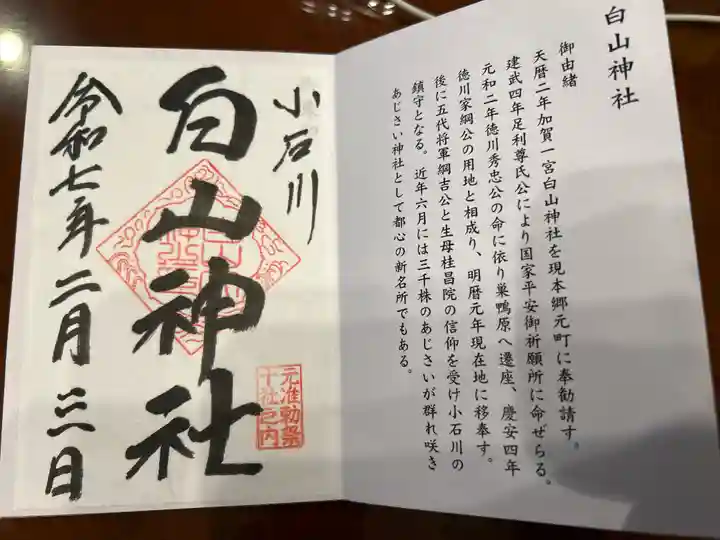 白山神社
御由緒
天暦二年加賀一宮白山神社を現本郷元町に奉勧請す。
建武四年足利尊氏公により国家平安御祈願所に命ぜらる。
元和二年徳川秀忠公の命に依り巣鴨原へ遷座、慶安四年
徳川家綱公の用地と相成り、明暦元年現在地に移奉す。
後に五代将軍綱吉公と生母桂昌院の信仰を受け小石川の
鎮守となる。近年六月には三千株のあじさいが群れ咲き
あじさい神社として都心の新名所でもある。
小石川
白山神社
令和七年二月三日
元准勅祭
十社之内